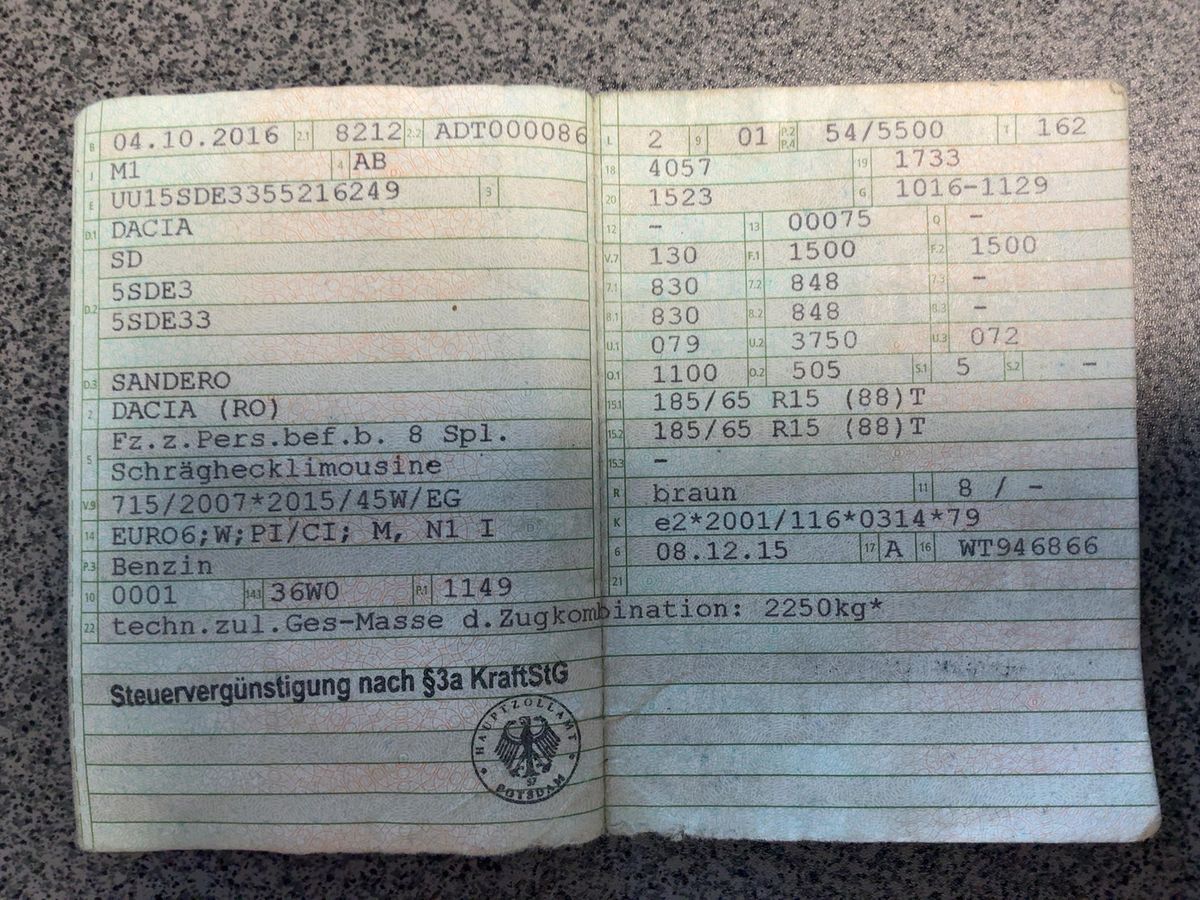 B 04.10.2016 2.1 8212 2.2 ADT000086
J M1 4 AB
E UU15SDE3355216249 3
D.1 DACIA
SD
D.2 5SDE3
5SDE33
D.3 SANDERO
2 DACIA (RO)
5 Fz.z.Pers.bef.b. 8 Spl.
Schräghecklimousine
V.9 715/2007*2015/45W/EG
14 EURO6;W;PI/CI; M, N1 I
P.3 Benzin
10 0001 14.1 36W0 P.1 1149
22 techn.zul.Ges-Masse d.Zugkombination: 2250kg*
Steuervergünstigung nach §3a KraftStG
HAUPTZOLLAMT
37
POTSDAM
L 2 9 01 P.2 P.4 54/5500 T 162
18 4057 19 1733
20 1523 G 1016-1129
12 - 13 00075 Q -
V.7 130 F.1 1500 F.2 1500
7.1 830 7.2 848 7.3 -
8.1 830 8.2 848 8.3 -
U.1 079 U.2 3750 U.3 072
O.1 1100 O.2 505 S.1 5 S.2 -
15.1 185/65 R15 (88)T
15.2 185/65 R15 (88)T
15.3 -
R braun 11 8 / -
K e2*2001/116*0314*79
6 08.12.15 17 A 16 WT946866
21